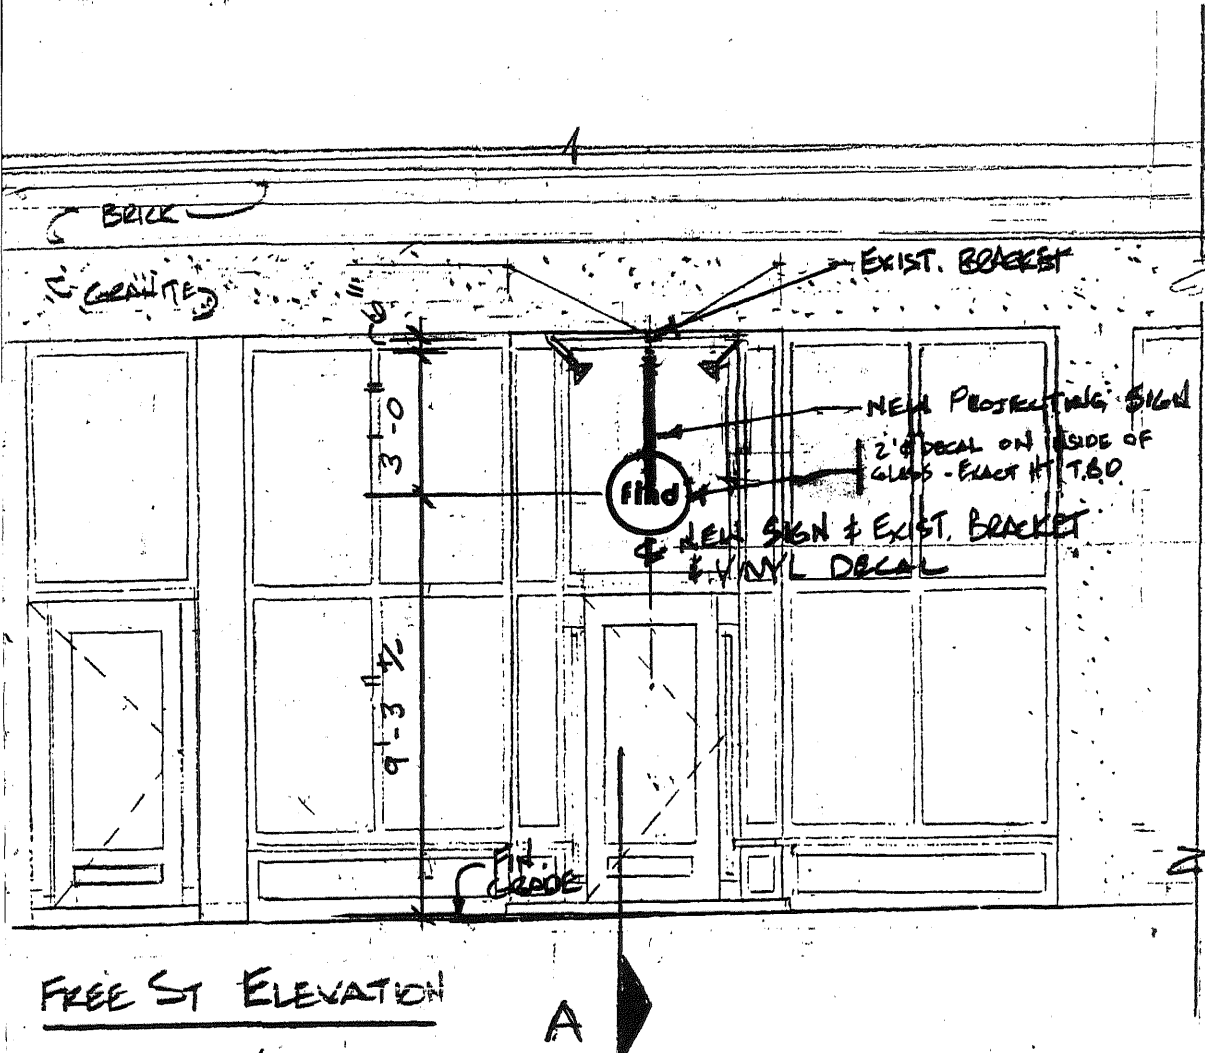 BRICK
GRANITE
EXIST. BRACKET
6"
3'-0"
NEW PROJECTING SIGN
2'⌀ DECAL ON INSIDE OF
GLASS - EXACT HT T.B.D.
find
℄ NEW SIGN & EXIST. BRACKET
& VINYL DECAL
9'-3" +/-
FIN.
GRADE
FREE ST ELEVATION
A